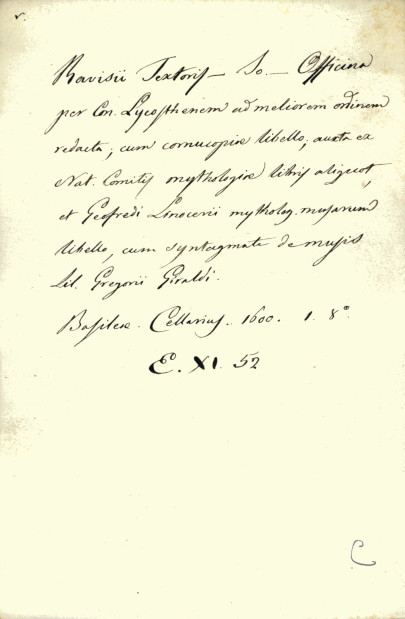 v.
Ravisii Textoris — Jo. — Officina
per Con. Lycosthenem ad meliorem ordinem
redacta; cum cornucopiæ libello, aucta ex
Nat. Comitis mythologiæ libris aliquot,
et Geofredi Linocerii mytholog. musarum
libello, cum syntagmate de musis
Lil. Gregorii Giraldi.
Basileæ. Cellarius. 1600. 1. 8°
E. XI. 52
C